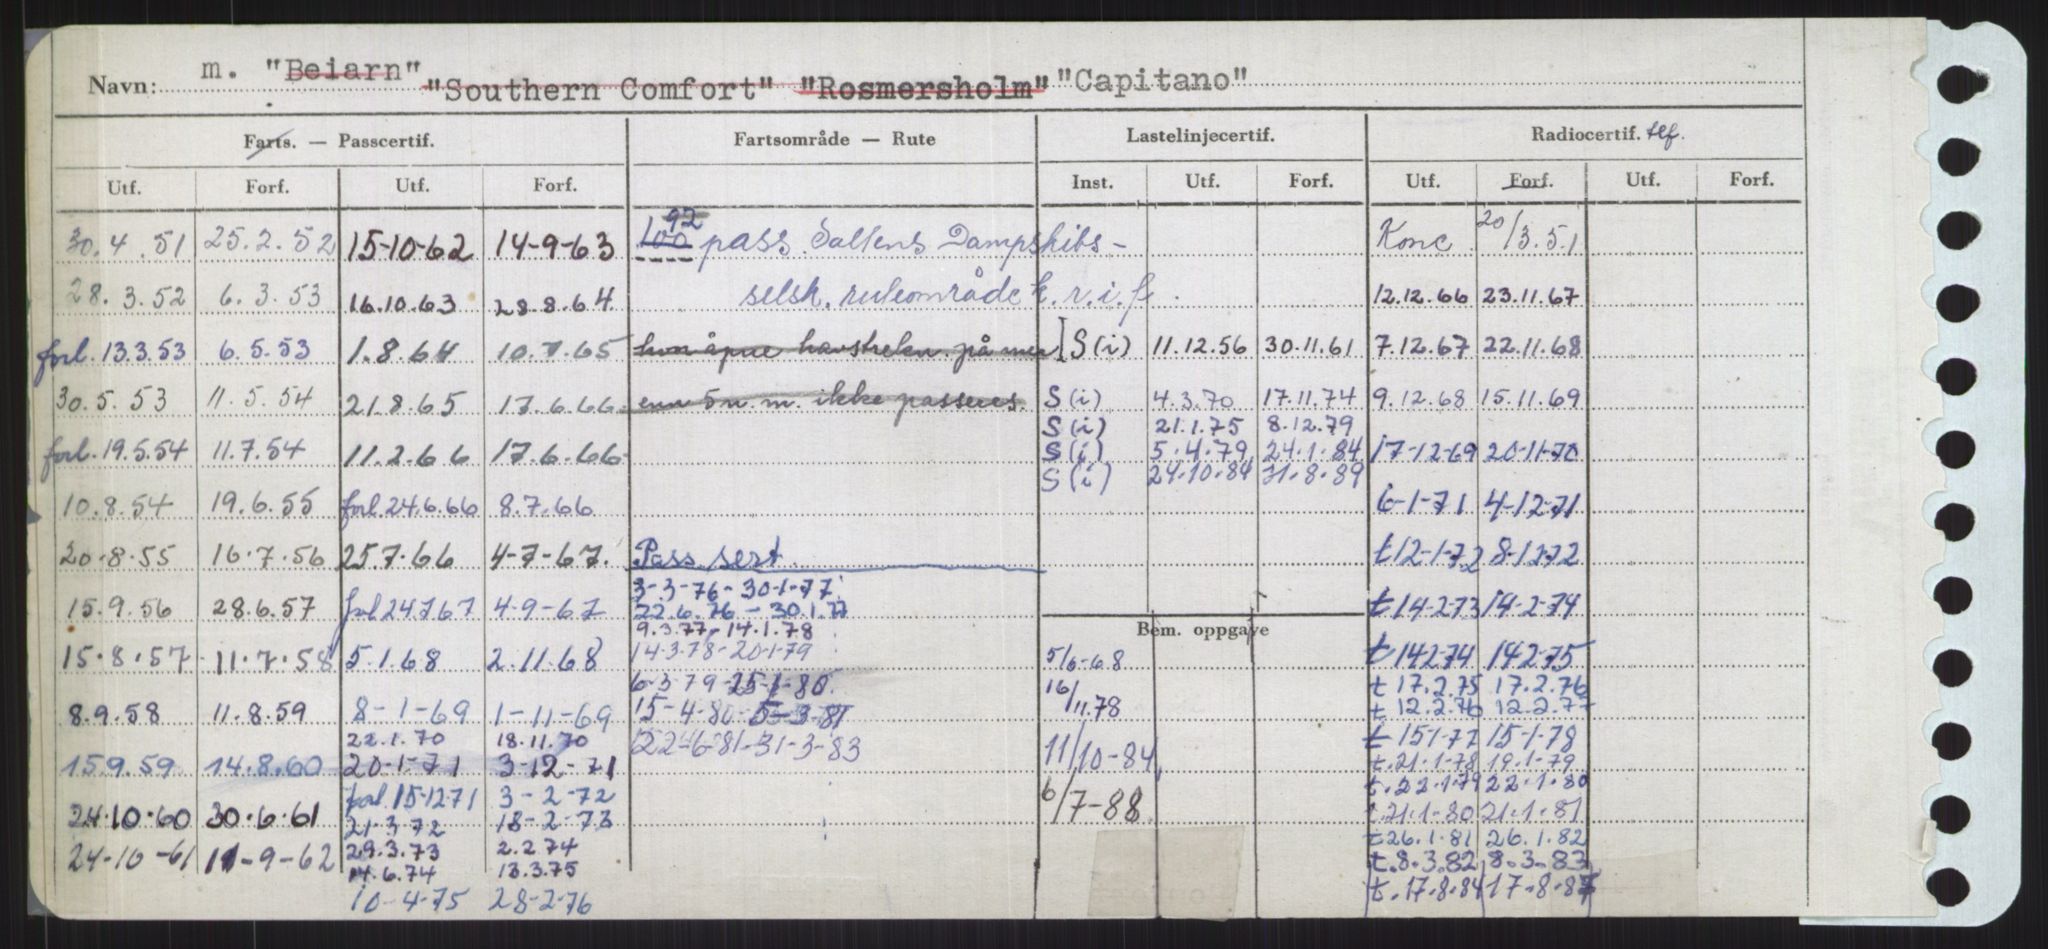 Navn: m. "Beiarn" "Southern Comfort" "Rosmersholm" "Capitano"
Farts. — Passcertif. Fartsområde — Rute Lastelinjecertif. Radiocertif. tlf.
Utf. Forf. Utf. Forf. Inst. Utf. Forf. Utf. Forf. Utf. Forf.
30.4.51 25.2.52 15-10-62 14-9-63 100 92 pass. Saltens Dampskibs- Konc. 20/3.51
28.3.52 6.3.53 16.10.63 28.8.64 selsk. ruteområde k.r.i.f. 12.12.66 23.11.67
forl. 13.3.53 6.5.53 1.8.64 10.7.65 hvor åpne havstrekn. på mer S(i) 11.12.56 30.11.61 7.12.67 22.11.68
30.5.53 11.5.54 21.8.65 17.6.66 enn 5 n.m. ikke passeres. S(i) 4.3.70 17.11.74 9.12.68 15.11.69
S(i) 21.1.75 8.12.79
forl. 19.5.54 11.7.54 11.2.66 17.6.66 S(i) 5.4.79 24.1.84 17-12-69 20-11-70
S(i) 24.10.84 31.8.89
10.8.54 19.6.55 forl. 24.6.66 8.7.66 6-1-71 4-12-71
20.8.55 16.7.56 25.7.66 4-7-67. Pass sert. t 12-1-72 8-12-72
3-3-76 - 30-1-77
15.9.56 28.6.57 forl 24.7.67 4-9-67 22.6.76 - 30.1.77 t 14-2-73 14-2-74
9.3.77 - 14.1.78 Bem. oppgave
15.8.57 11.7.58 5.1.68 2.11.68 14-3-78 - 20-1-79 5/6-68 t 14.2.74 14.2.75
6-3-79 - 25-1-80. 16/11.78 t 17.2.75 17.2.76
8.9.58 11.8.59 8-1-69 1-11-69 15-4-80 - 5-3-81 t 12.2.76 12.2.77
22.1.70 18.11.70 22-6-81 - 31-3-83 11/10-84 t 15-1-77 15-1-78
15.9.59 14.8.60 20-1-71 3-12-71 t. 21.1-78 19.1-79
forl. 15-12-71 3-2-72 6/7-88 t. 22.1.79 22.1.80
24.10.60 30.6.61 21-3-72 18-2-73 t. 21.1-80 21.1.81
t 26.1.81 26.1.82
24-10-61 11-9-62 29.3.73 2.2.74 t. 8.3.82 8.3.83
14.6.74 13.3.75 t. 17.8.84 17-8-87
10-4-75 28-2-76